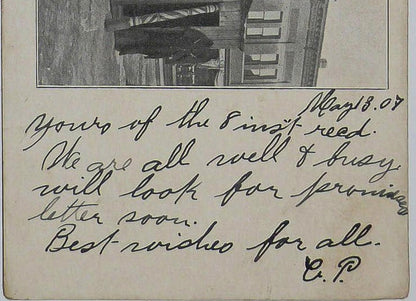 May 13. 07
Yours of the 8 inst recd.
We are all well & busy.
will look for promised
letter soon.
Best wishes for all.
C. P.